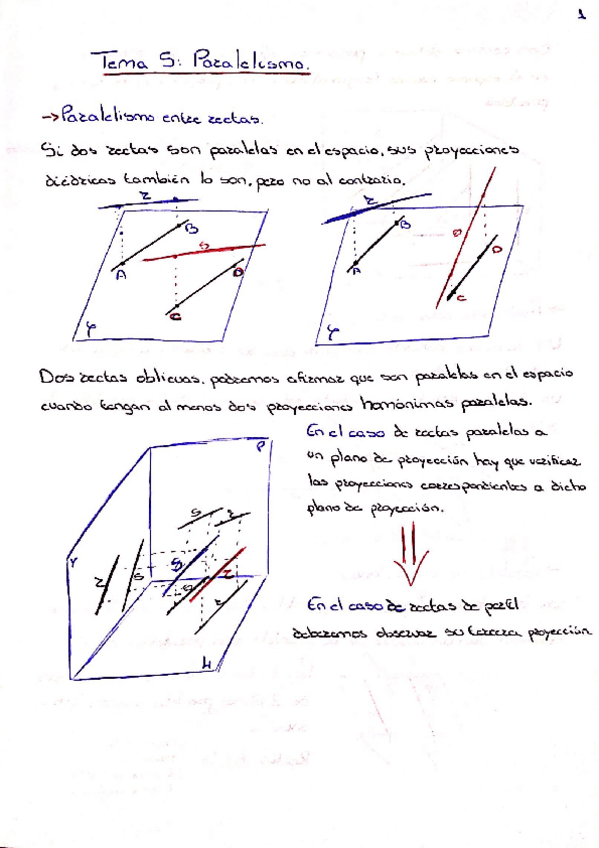 1
Tema 5: Paralelismo.
→Paralelismo entre rectas.
Si dos rectas son paralelas en el espacio, sus proyecciones
diédricas también lo son, pero no al contrario.
r
B
s
A
D
C
φ
r
B
s
D
A
C
φ
Dos rectas oblicuas, podremos afirmar que son paralelas en el espacio
cuando tengan al menos dos proyecciones homónimas paralelas.
En el caso de rectas paralelas a
un plano de proyección hay que verificar
las proyecciones correspondientes a dicho
plano de proyección.
P
V
s
r
r
s
s
r
s
r
H
En el caso de rectas de perfil
deberemos observar su tercera proyección